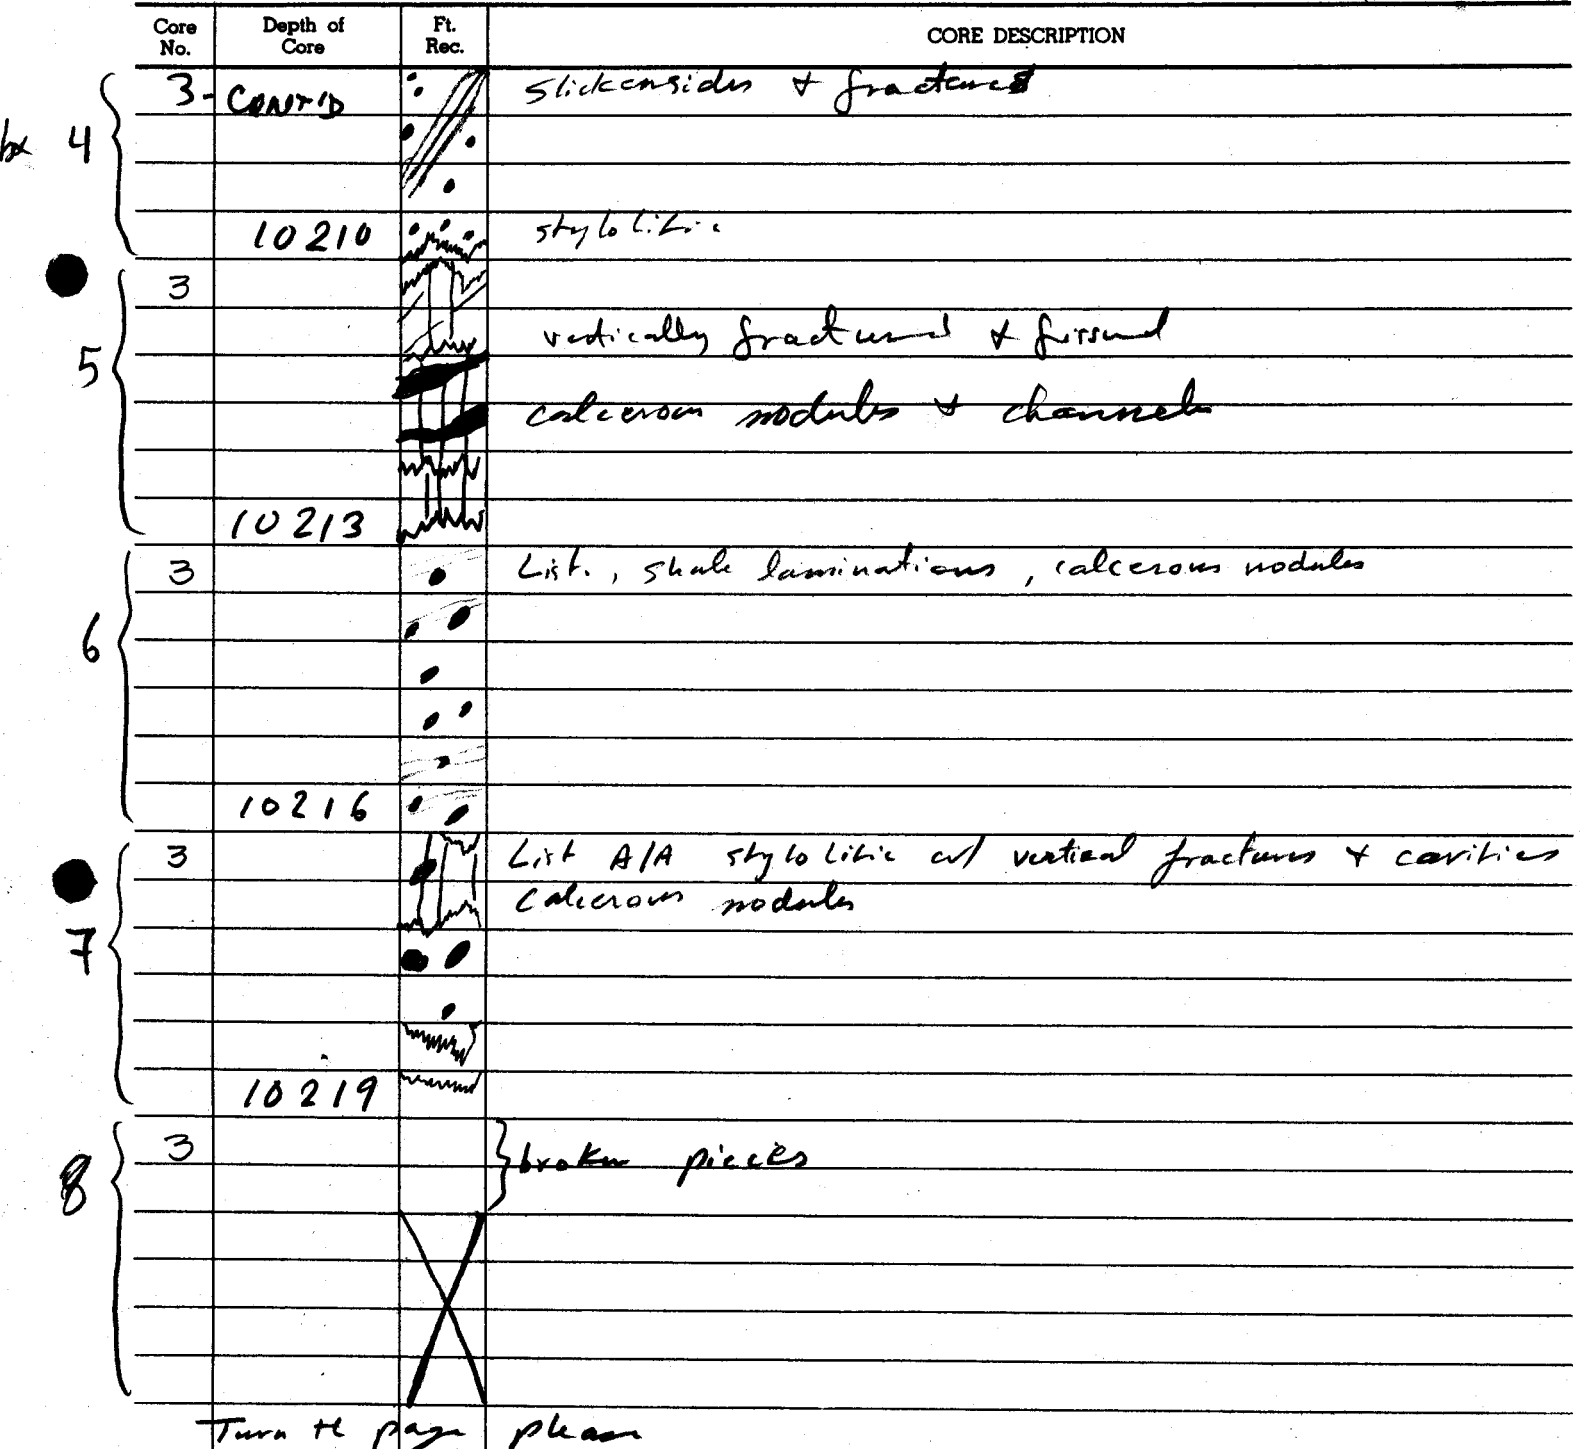 Core No. Depth of Core Ft. Rec. CORE DESCRIPTION
3- CONT'D slickensides & fractures
bx 4
10210 stylolitic
3
vertically fractured & fissured
5
calcerous nodules & channels
10213
3 List., shale laminations, calcerous nodules
6
10216
3 List A/A stylolitic w/ vertical fractures & cavities
calcerous nodules
7
10219
3 broken pieces
8
Turn the page please